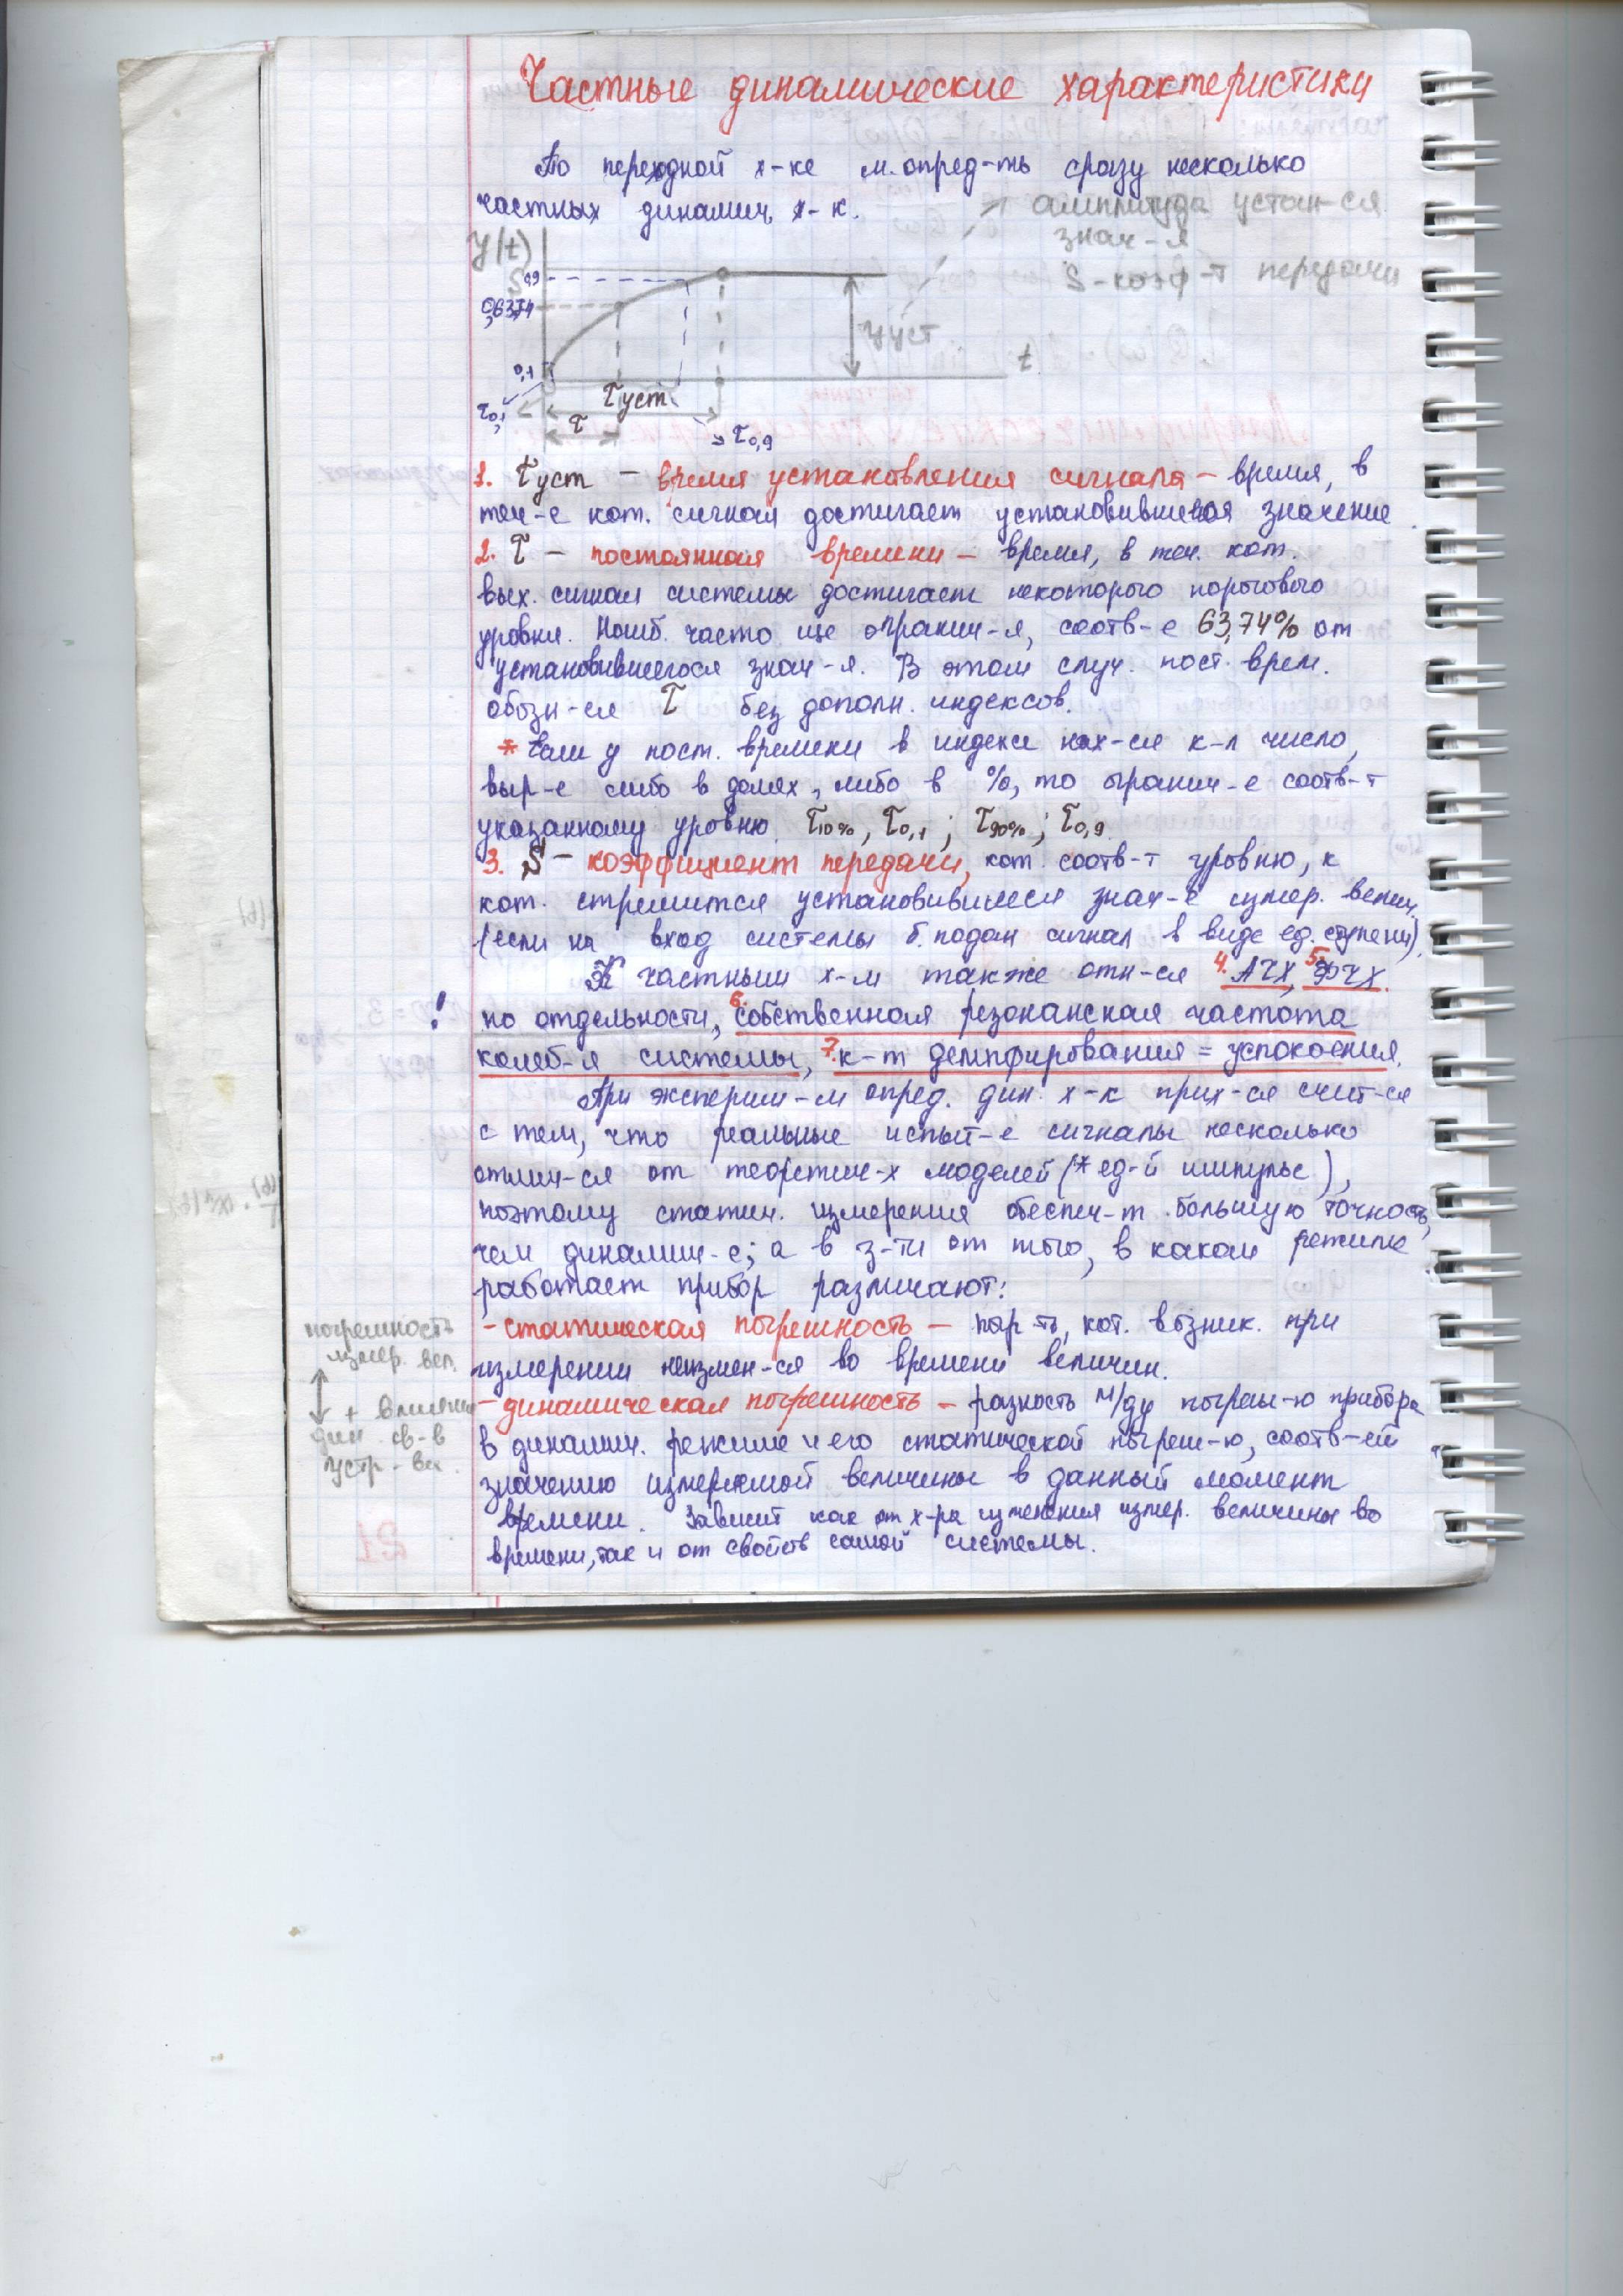 Частные динамические характеристики
По переходной х-ке м. опред-ть сразу несколько
частных динамич. х-к.
амплитуда устан-ся
знач-я
S - коэф-т передачи
y(t)
S
0,9
0,6374
0,1
y уст
t
τ уст
τ
τ0,1
τ0,9
1. τ уст – время установления сигнала – время, в
теч-е кот. сигнал достигает установившееся значение
2. τ – постоянная времени – время, в теч. кот.
вых. сигнал системы достигает некоторого порогового
уровня. Наиб. часто исп огранич-я, соотв-е 63,74% от
установившегося знач-я. В этом случ. пост. врем.
обозн-ся τ без дополн. индексов.
* Если у пост. времени в индексе нах-ся к-л число,
выр-е либо в долях, либо в %, то огранич-е соотв-т
указанному уровню τ10%, τ0,1; τ90%; τ0,9
3. S – коэффициент передачи, кот. соотв-т уровню, к
кот. стремится установившееся знач-е измер. велич.
(если на вход системы б. подан сигнал в виде ед. ступени).
К частным х-м также отн-ся 4. АЧХ, 5. ФЧХ
! по отдельности, 6. собственная резонансная частота
колеб-я системы, 7. к-т демпфирования = успокоения.
При эксперим-м опред. дин. х-к прих-ся счит-ся
с тем, что реальные испыт-е сигналы несколько
отлич-ся от теоретич-х моделей (* ед-й импульс),
поэтому статич. измерения обеспеч-т большую точность,
чем динамич-е; а в з-ти от того, в каком режиме
работает прибор различают:
- статическая погрешность – погр-ть, кот. возник. при
измерении неизмен-ся во времени величин.
- динамическая погрешность – разность м/ду погреш-ю прибора
в динамич. режиме и его статической погреш-ю, соотв-ей
значению измеряемой величины в данный момент
времени. Зависит как от х-ра изменения измер. величины во
времени, так и от свойств самой системы.
погрешность
измер. вел.
+ влияние
дин. св-в
устр-ва.